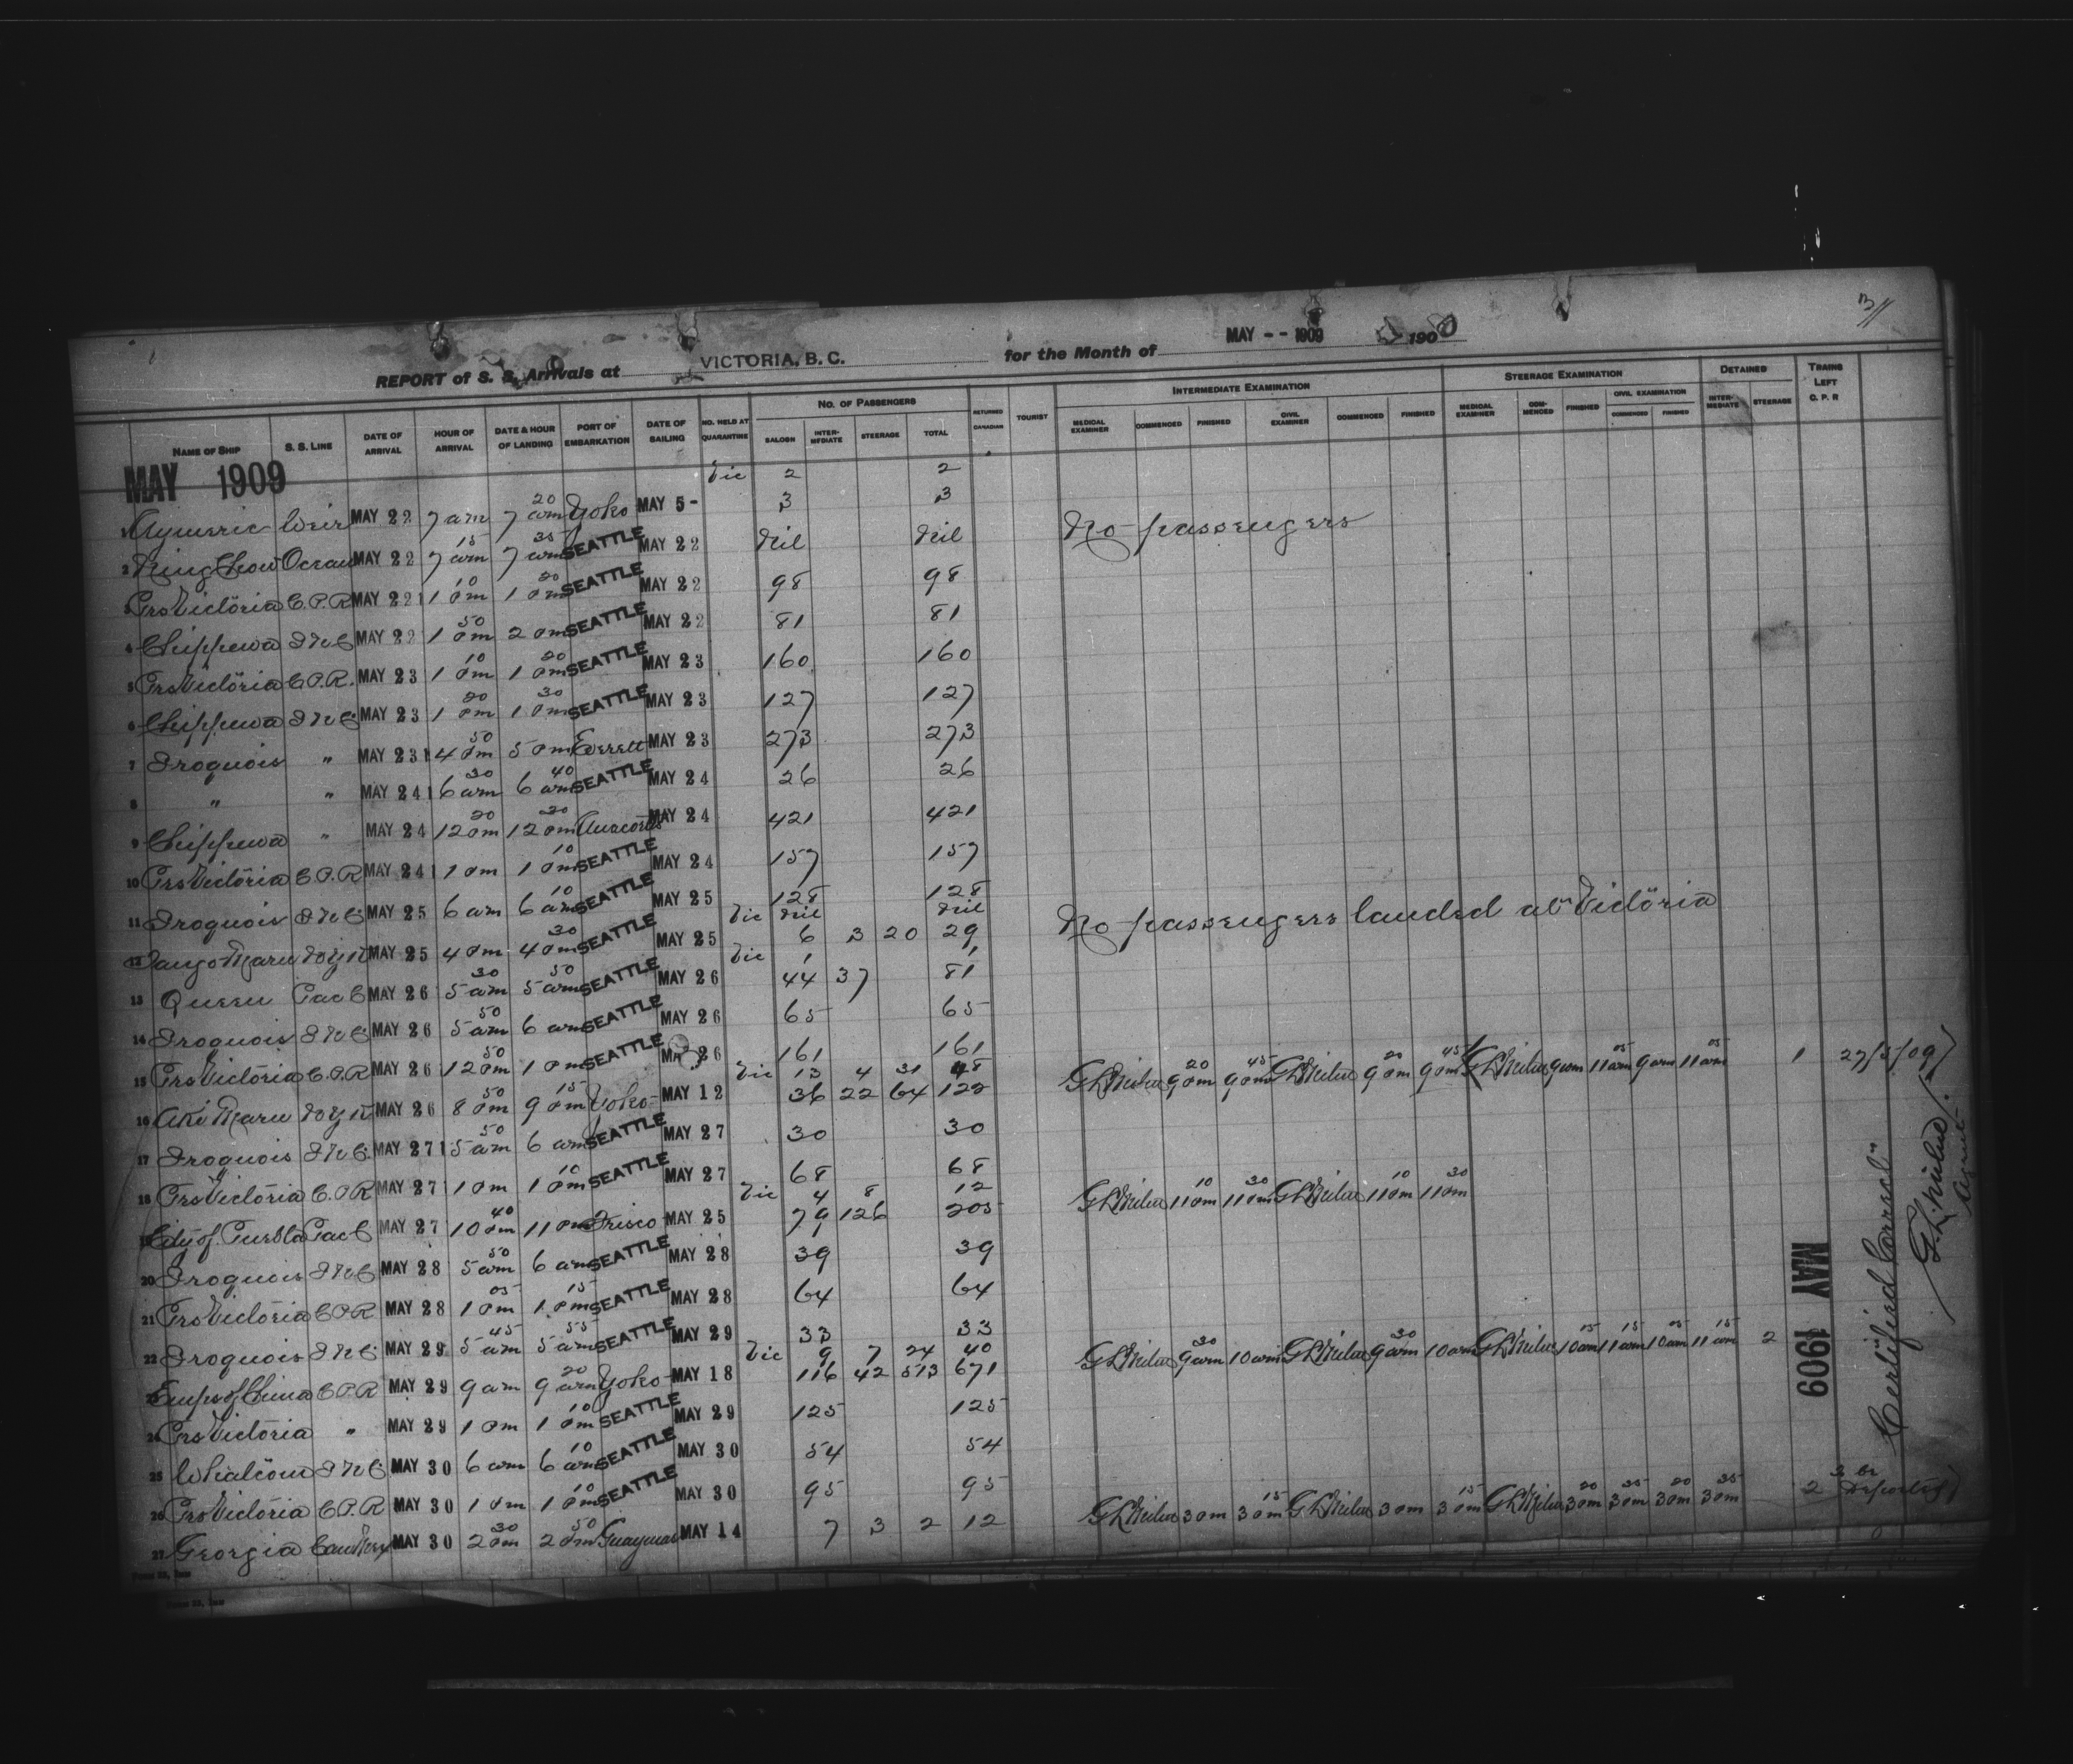 3//
REPORT of S. S. Arrivals at VICTORIA, B. C. for the Month of MAY -- 1909 190
NAME OF SHIP S. S. LINE DATE OF ARRIVAL HOUR OF ARRIVAL DATE & HOUR OF LANDING PORT OF EMBARKATION DATE OF SAILING NO. HELD AT QUARANTINE NO. OF PASSENGERS SALOON INTER-MEDIATE STEERAGE TOTAL RETURNED CANADIAN TOURIST INTERMEDIATE EXAMINATION MEDICAL EXAMINER COMMENCED FINISHED CIVIL EXAMINER COMMENCED FINISHED STEERAGE EXAMINATION MEDICAL EXAMINER COM-MENCED FINISHED CIVIL EXAMINATION COMMENCED FINISHED DETAINED INTER-MEDIATE STEERAGE TRAINS LEFT C. P. R
MAY 1909
Vic 2 2
1 Aymeric Weir MAY 22 7 am 7 20 am Yoko MAY 5 - 3 3
2 Ning Chow Ocean MAY 22 7 15 am 7 35 am SEATTLE MAY 22 Nil Nil No passengers
3 Prs Victoria C.P.R MAY 22 1 10 pm 1 20 pm SEATTLE MAY 22 98 98
4 Chippewa I N C MAY 22 1 50 pm 2 pm SEATTLE MAY 22 81 81
5 Prs Victoria C.P.R. MAY 23 1 10 pm 1 20 pm SEATTLE MAY 23 160 160
6 Chippewa I N C MAY 23 1 20 pm 1 30 pm SEATTLE MAY 23 127 127
7 Iroquois " MAY 23 4 50 pm 5 pm Everett MAY 23 273 273
8 " " MAY 24 6 30 am 6 40 am SEATTLE MAY 24 26 26
9 Chippewa " MAY 24 12 20 pm 12 30 pm Anacortes MAY 24 421 421
10 Prs Victoria C.P.R MAY 24 1 pm 1 10 pm SEATTLE MAY 24 157 157
11 Iroquois I N C MAY 25 6 am 6 10 am SEATTLE MAY 25 128 128
Vic Nil Nil No passengers landed at Victoria
12 Tango Maru N Y K MAY 25 4 pm 4 30 pm SEATTLE MAY 25 6 3 20 29
Vic 1 1
13 Queen Pac C MAY 26 5 30 am 5 50 am SEATTLE MAY 26 44 37 81
14 Iroquois I N C MAY 26 5 50 am 6 am SEATTLE MAY 26 65 65
15 Prs Victoria C.P.R MAY 26 12 50 pm 1 pm SEATTLE MAY 26 161 161
Vic 13 4 31 48 G L Milne 9 20 pm 9 45 pm G L Milne 9 20 pm 9 45 pm G L Milne 9 am 11 05 am 9 am 11 05 am 1 27/5/09
16 Aki Maru N Y K MAY 26 8 50 pm 9 15 pm Yoko- MAY 12 36 22 64 122
17 Iroquois I N C MAY 27 5 50 am 6 am SEATTLE MAY 27 30 30
18 Prs Victoria C.P.R MAY 27 1 pm 1 10 pm SEATTLE MAY 27 68 68
Vic 4 8 12 G L Milne 11 10 pm 11 30 pm G L Milne 11 10 pm 11 30 pm
19 City of Puebla Pac C MAY 27 10 40 pm 11 pm Frisco MAY 25 79 126 205
20 Iroquois I N C MAY 28 5 50 am 6 am SEATTLE MAY 28 39 39
21 Prs Victoria C.P.R MAY 28 1 05 pm 1 15 pm SEATTLE MAY 28 64 64
22 Iroquois I N C MAY 29 5 45 am 5 55 am SEATTLE MAY 29 33 33
Vic 9 7 24 40 G L Milne 9 30 am 10 am G L Milne 9 30 am 10 am G L Milne 10 15 am 11 15 am 10 05 am 11 15 am 2
23 Emps of China C.P.R MAY 29 9 am 9 20 am Yoko- MAY 18 116 42 513 671
24 Prs Victoria " MAY 29 1 pm 1 10 pm SEATTLE MAY 29 125 125
25 Whatcom I N C MAY 30 6 am 6 10 am SEATTLE MAY 30 54 54
26 Prs Victoria C.P.R MAY 30 1 pm 1 10 pm SEATTLE MAY 30 95 95
27 Georgia Can Mex MAY 30 2 30 pm 2 50 pm Guaymas MAY 14 7 3 2 12 G L Milne 3 pm 3 15 pm G L Milne 3 pm 3 15 pm G L Milne 3 20 pm 3 35 pm 3 20 pm 3 35 pm 2
MAY 1909
Certified Correct"
G. L. Milne
Agent